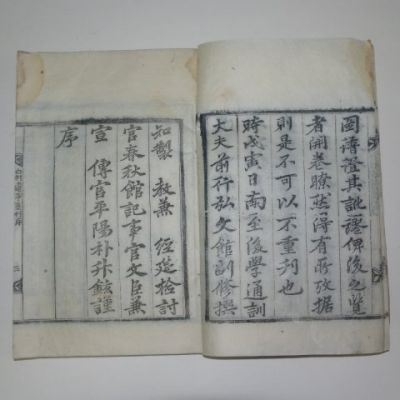 圖譜證其訛謬俾後之覽
者開卷瞭然得有所攷據
則是不可以不重刋也
時戊寅日南至後學通訓
大夫前行弘文館副修撰
知製 教兼 經筵檢討
官春秋館記事官文臣兼
宣 傳官平陽朴升鉉謹
序